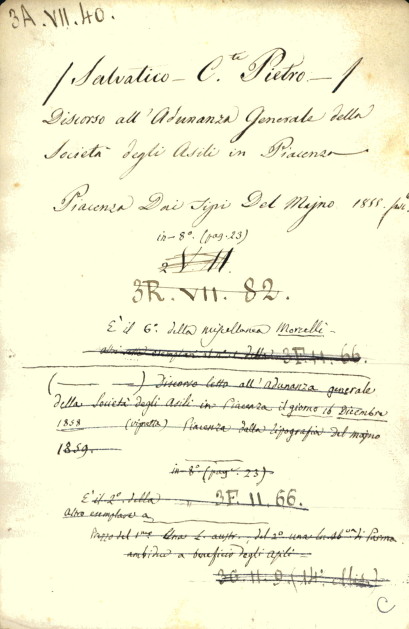 3A.VII.40.
/ Salvatico – C.te Pietro – /
Discorso all'Adunanza Generale della
Società degli Asili in Piacenza
Piacenza Dai Tipi Del Majno 1855.
in-8°. (pag. 23)
V II
3R.VII.82.
È il 6°. della miscellanea Morselli –
3F.II.66.
( — — ) Discorso letto all'Adunanza generale
della Società degli Asili in Piacenza il giorno 16 Dicembre
1858 (vignetta) Piacenza dalla tipografia del majno
1859.
in-8° (pag. 23)
È il 2°. della 3F.II.66.
Altro esemplare a
Prezzo del 1mo L. austr., del 2° una lira di Parma
ambidue a beneficio degli Asili –
3C.II.9.
C